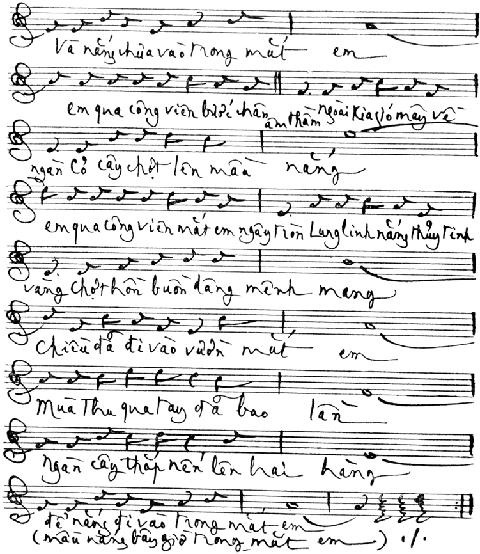 Và nắng chừa vào trong mắt em
em qua công viên bước chân âm thầm ngoài kia gió mây về
ngàn cỏ cây chợt lên màu nắng
em qua công viên mắt em ngây tròn Lung linh nắng thủy tinh
vàng chợt hồn buồn dâng mênh mang
Chiều đã đi vào vườn mắt em
Mùa thu qua tay đã bao lần
Ngàn cây thắp nến lên hai hàng
để nắng đi vào trong mắt em
(màu nắng bây giờ trong mắt em)